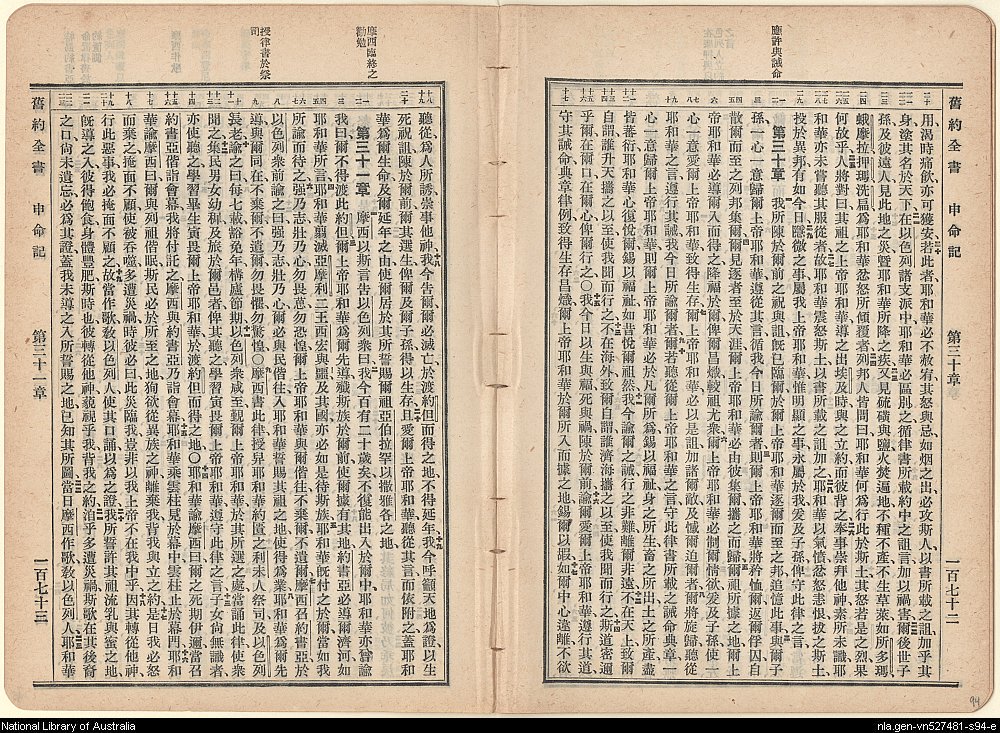 應許與誡命
舊約全書 申命記 第三十章 一百七十二
用渴時痛飲亦可獲安若此者耶和華必不赦宥其怒與忌如烟之出必攻斯人以書所載之詛加乎其
身塗其名於天下在以色列諸支派中耶和華必區別之循律書所載約中之詛言加以禍害爾後世子
孫及彼遠人見此地之災曁耶和華所降之疾又見硫磺與鹽火焚遍地不種不產不生草萊如所多瑪
蛾摩拉押瑪洗扁爲耶和華忿怒所傾覆者列邦人皆問曰耶和華何爲行此於斯土其怒若是之烈果
何故乎人將對曰其祖之上帝耶和華導之出埃及時與之立約而彼背之奉事崇拜他神素所未識耶
和華亦未嘗聽其服從者故耶和華震怒斯土以書所載之詛加之耶和華以氣憤忿怒恚恨拔之斯土
投於異邦有如今日隱微之事屬我上帝耶和華惟明顯之事永屬於我爰及子孫俾守此律之言
第三十章 我所陳於爾前之祝與詛旣已臨爾爾上帝耶和華逐爾而至之邦追憶此事與爾子
孫一心一意歸爾上帝耶和華遵從其言循我今日所諭爾者則爾上帝耶和華將矜恤爾返爾俘囚自
散爾而至之列邦集爾爾見逐者至於天涯爾上帝耶和華必由彼集爾攜之而歸爾祖所據之地爾上
帝耶和華必導爾入而得之降福於爾俾爾昌熾較祖尤衆爾上帝耶和華必制爾情欲爰及子孫使一
心一意愛爾上帝耶和華致得生存爾上帝耶和華必以是詛加諸爾敵及憾爾迫爾者爾將旋歸聽從
耶和華之言遵行其誡我今日所諭爾者爾若聽從爾上帝耶和華之言守此律書所載之誡命典章一
心一意歸爾上帝耶和華則爾上帝耶和華必於爾凡所爲錫以福祉身之所生畜之所出土之所產盡
皆蕃衍耶和華必復悅爾錫以福祉如昔悅爾祖然我今諭爾之誡行之非難離爾非遠不在天上致爾
自謂誰升天攜之以至使我聞而行之不在海外致爾自謂誰濟海攜之以至使我聞而行之斯道密邇
乎爾在爾口在爾心可得行之我今以生與福死與禍陳於爾前諭爾愛爾上帝耶和華遵行其道
守其誡命典章律例致得生存昌熾爾上帝耶和華於爾所入而據之地錫爾以嘏如爾中心違離不欲
摩西臨終之勸勉
授律書於祭司
聽從爲人所誘崇事他神我今告爾爾必滅亡於渡約但而得之地不得延年我今呼籲天地爲證以生
死祝詛陳於爾前爾其選生俾爾及爾子孫得以生存且愛爾上帝耶和華聽從其言而依附之蓋耶和
華爲爾生命及爾延年之由使爾居於其所誓賜爾祖亞伯拉罕以撒雅各之地
第三十一章 摩西以斯言告以色列衆曰我今百有二十歲矣不復能出入於爾中耶和華亦曾諭
我曰爾不得渡此約但爾上帝耶和華爲爾先導滅斯族於爾前使爾據有其地約書亞必導爾濟河如
耶和華所言耶和華翦滅亞摩利二王西宏與噩及其國亦必如是待斯族耶和華旣付之於爾當如我
所諭而待之強乃志壯乃心勿畏葸勿恐惶爾上帝耶和華與爾偕往不棄爾不遺爾摩西召約書亞於
以色列衆前諭之曰強乃志壯乃心爾必與民偕往入耶和華誓賜其祖之地使得爲業耶和華爲爾先
導與爾同在不棄爾不遺爾勿畏懼勿驚惶○摩西書此律授舁耶和華約匱之利未人祭司及以色列
長老諭之曰每七載豁免年構廬節期以色列衆咸至覲爾上帝耶和華於其所選之處當誦此律使衆
聞之集民男女幼稚及旅於爾邑者俾其聽之學習寅畏爾上帝耶和華遵守此律之言子女尙無識者
亦使聽之學習畢生寅畏爾上帝耶和華於渡約但而得之地○耶和華諭摩西曰爾之死期伊邇當召
約書亞偕詣會幕我將付託之摩西與約書亞乃詣會幕耶和華乘雲柱見於幕中雲柱止於幕門耶和
華諭摩西曰爾與列祖偕眠斯民必於所至之地狥欲從異族之神離棄我背我與立之約是日我必怒
而棄之掩面不顧使被吞噬多遭災禍時彼必曰此災臨我豈非以我上帝不在我中乎因其轉從他神
行此惡事我必掩面不顧之故當作歌敎以色列人使其口誦以爲之證我所誓許其祖流乳與蜜之地
旣導之入彼得飽食身體豐肥斯時也彼轉從他神藐視乎我背我之約洎乎多遭災禍斯歌在其後裔
之口尙未遺忘必爲其證蓋我未導之入所誓賜之地已知其所圖當日摩西作歌敎以色列人耶和華
舊約全書 申命記 第三十一章 一百七十三
94
National Library of Australia
nla.gen-vn527481-s94-e